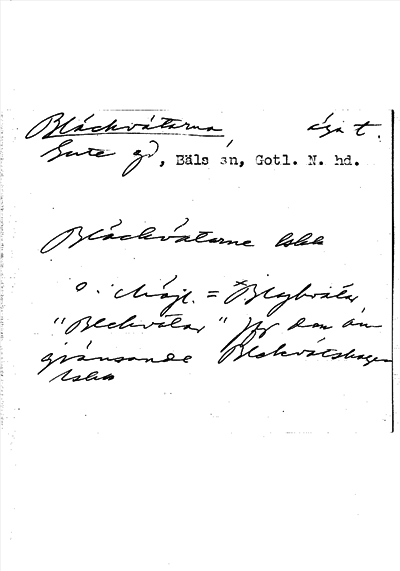 Bláckvátarna äga t.
Gute gd, Bäls sn, Gotl. N. hd.
Bláckvátarne lskk
o. Möjl. = *Blegkvátar,
"Bleckvátar" jfr den an-
gränsande Blekvätshagen
lskk